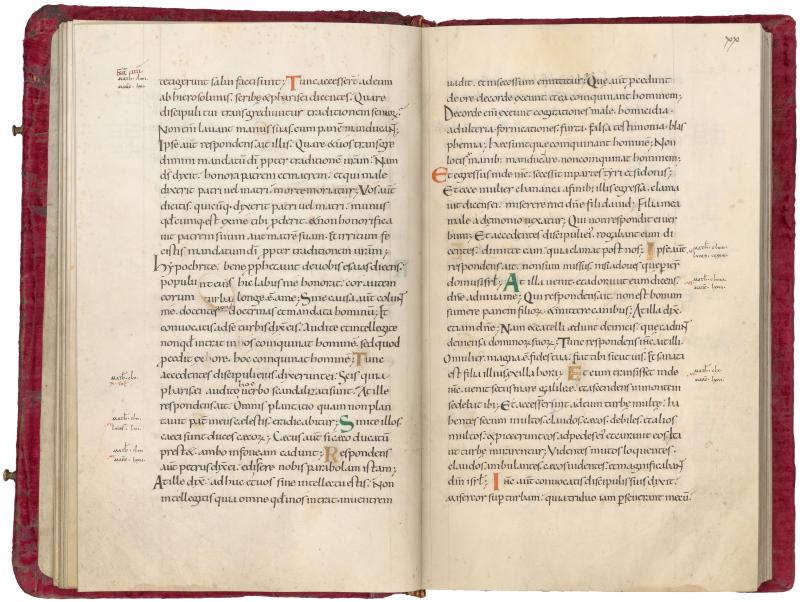 tetigerunt salui facti sunt; Tunc accesser̄ ad eum
ab hierosolimis. scribę & pharisei dicentes. Quare
discipuli tui transgrediuntur traditionem senior̄.
Non eni lauant manus suas cum panē manducant;
Ipse aut̄ respondens ait illis. Quare & uos transgre
dimini mandatū dī ppter traditionē uram; Nam
ds̄ dix̄. honora patrem et matrem. et qui male
dixerit patri uel matri. morte moriatur; Vos aut̄
dicitis. quicūq; dixerit patri uel matri. munus
qđcumq; est ex me tibi pderit. et non honorifica
uit patrem suum aut matrē suam. Et irritum fe
cistis mandatum dī ppter traditionem uram;
hypochritę. bene pphetauit de uobis esaias dicens.
populus hic labiis me honorat. cor autem
eorum longe ē a me; Sine causa aut̄ colunt
me. docentes doctrinas et mandata hominū; Et
conuocatis ad se turbis dix̄ eis. Audite et intellegite
non qđ intrat in os coinquinat hominē. sed quod
pcedit ex ore. hoc coinquinat hominē; Tunc
accedentes discipuli eius dixer̄ ei; Scis quia
pharisei audito uerbo hoc scandalizati sunt; At ille
respondens ait. Omnis plantatio quam non plan
tauit pat̄ meus cęlestis. eradicabitur; Sinite illos.
cęci sunt duces cęcor̄; Cęcus aut̄ si cęco ducatū
prestet. ambo in foueam cadunt; Respondens
aut̄ petrus dix̄ ei. edisere nobis parabolam istam;
At ille dix̄. adhuc et uos sine intellectu estis. Non
intellegitis quia omne qđ in os intrat. in uentrem
xx
uadit. et in secessum emittitur; Quę aut̄ pcedunt
de ore. de corde exeunt. et ea coinquinant hominem;
De corde eni exeunt cogitationes malę. homicidia.
adulteria. fornicationes. furta. falsa testimonia. blas
phemia; hęc sunt quę coinquinant hominē; Non
lotis manib; manducare. non coinquinat hominem;
Et egressus inde ihc̄. secessit in partes tyri et sidonis;
Et ecce mulier chananea a finib; illis egressa. clama
uit dicens ei. miserere mei dn̄e fili dauid; Filia mea
male a demonio uexatur; Qui non respondit ei uer
bum; Et accedentes discipuli eius. rogabant eum di
centes. dimitte eam. quia clamat post nos; Ipse aut̄
respondens ait. non sum missus. nisi ad oues quę perier̄
domus isrl̄; At illa uenit. et adorauit eum dicens.
dn̄e adiuua me; Qui respondens ait. non est bonum
sumere panem filior̄. et mittere canibus; At illa dix̄.
etiam dn̄e; Nam et catelli ędunt de micis. quę cadunt
de mensa dominor̄ suor̄; Tunc respondens ihc̄. ait illi.
O mulier. magna ē fides tua. fiat tibi sicut uis. Et sanata
est filia illius ex illa hora; Et cum transisset inde
ihc̄. uenit secus mare galileę. et ascendens in montem
sedebat ibi; Et accesser̄ ad eum turbę multę. ha
bentes secum multos. claudos. cęcos. debiles. et alios
multos. et piecerunt eos ad pedes ei. et curauit eos. Ita
ut turbę mirarentur; Videntes mutos loquentes.
claudos ambulantes. cęcos uidentes. et magnificabant
dm̄ isrl̄; Ihc̄ aut̄ conuocatis discipulis suis dix̄.
misereor sup turbam. quia triduo iam pseuerant mecū.